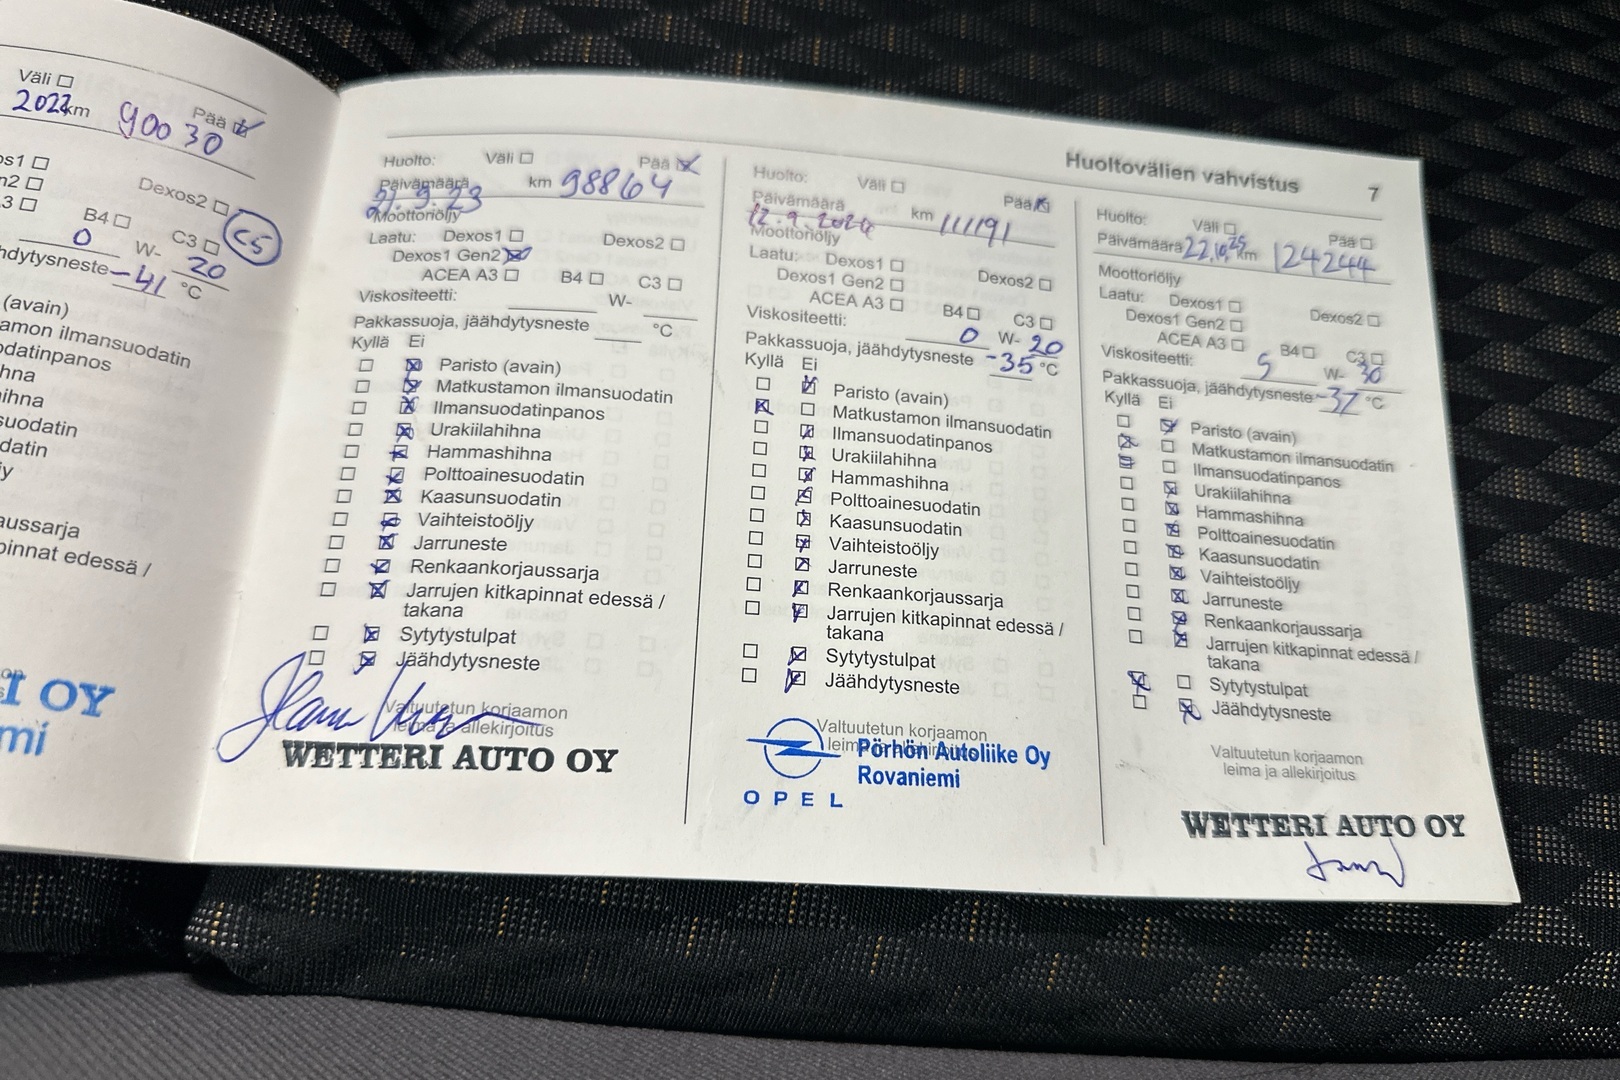 Väli ☐
Pää ☑
2022 km 90030
os1 ☐
n2 ☐
Dexos2 ☐
.3 ☐
B4 ☐
C3 ☐
C5
0 W- 20
hdytysneste -41 °C
(avain)
amon ilmansuodatin
odatinpanos
hna
ihna
suodatin
datin
y
aussarja
pinnat edessä /
I OY
mi
Huoltovälien vahvistus 7
Huolto: Väli ☐ Pää ☒
Päivämäärä 21.9.23 km 98864
Moottoriöljy
Laatu: Dexos1 ☐ Dexos2 ☐
Dexos1 Gen2 ☒
ACEA A3 ☐ B4 ☐ C3 ☐
Viskositeetti: W-
Pakkassuoja, jäähdytysneste °C
Kyllä Ei
☐ ☒ Paristo (avain)
☐ ☒ Matkustamon ilmansuodatin
☐ ☒ Ilmansuodatinpanos
☐ ☒ Urakiilahihna
☐ ☒ Hammashihna
☐ ☒ Polttoainesuodatin
☐ ☒ Kaasunsuodatin
☐ ☒ Vaihteistoöljy
☐ ☒ Jarruneste
☐ ☒ Renkaankorjaussarja
☐ ☒ Jarrujen kitkapinnat edessä /
takana
☐ ☒ Sytytystulpat
☐ ☒ Jäähdytysneste
Valtuutetun korjaamon
leima ja allekirjoitus
WETTERI AUTO OY
Huolto: Väli ☐ Pää ☒
Päivämäärä 12.9.2024 km 111191
Moottoriöljy
Laatu: Dexos1 ☐ Dexos2 ☐
Dexos1 Gen2 ☐
ACEA A3 ☐ B4 ☐ C3 ☐
Viskositeetti: 0 W- 20
Pakkassuoja, jäähdytysneste -35 °C
Kyllä Ei
☐ ☒ Paristo (avain)
☒ ☐ Matkustamon ilmansuodatin
☐ ☒ Ilmansuodatinpanos
☐ ☒ Urakiilahihna
☐ ☒ Hammashihna
☐ ☒ Polttoainesuodatin
☐ ☒ Kaasunsuodatin
☐ ☒ Vaihteistoöljy
☐ ☒ Jarruneste
☐ ☒ Renkaankorjaussarja
☐ ☒ Jarrujen kitkapinnat edessä /
takana
☐ ☒ Sytytystulpat
☐ ☒ Jäähdytysneste
Valtuutetun korjaamon
leima ja allekirjoitus
Pörhön Autoliike Oy
Rovaniemi
OPEL
Huolto: Väli ☐ Pää ☐
Päivämäärä 22.10.25 km 124244
Moottoriöljy
Laatu: Dexos1 ☐ Dexos2 ☐
Dexos1 Gen2 ☐
ACEA A3 ☐ B4 ☐ C3 ☐
Viskositeetti: 5 W- 30
Pakkassuoja, jäähdytysneste -37 °C
Kyllä Ei
☐ ☒ Paristo (avain)
☒ ☐ Matkustamon ilmansuodatin
☒ ☐ Ilmansuodatinpanos
☐ ☒ Urakiilahihna
☐ ☒ Hammashihna
☐ ☒ Polttoainesuodatin
☐ ☒ Kaasunsuodatin
☐ ☒ Vaihteistoöljy
☐ ☒ Jarruneste
☐ ☒ Renkaankorjaussarja
☐ ☒ Jarrujen kitkapinnat edessä /
takana
☒ ☐ Sytytystulpat
☐ ☒ Jäähdytysneste
Valtuutetun korjaamon
leima ja allekirjoitus
WETTERI AUTO OY